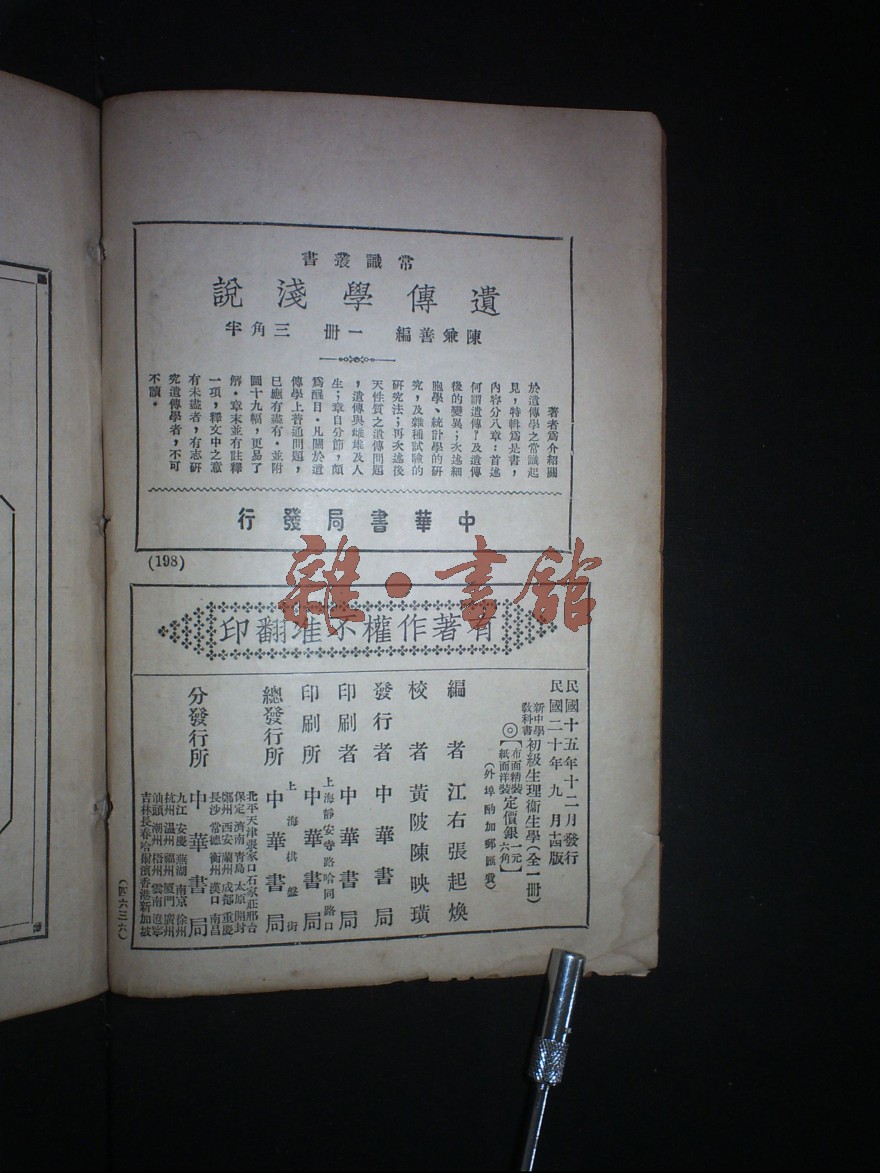 常識叢書
遺傳學淺說
陳兼善編 一册 三角半
著者爲介紹關
於遺傳學之常識起
見，特輯爲是書，
內容分八章：首述
何謂遺傳？及遺傳
後的變異；次述細
胞學、統計學的研
究，及雜種試驗的
研究法；再次述後
天性質之遺傳問題
，遺傳與雌雄及人
生；章自分節，頗
爲醒目．凡關於遺
傳學上普通問題，
已應有盡有．並附
圖十九幅，更易了
解．章末並有註釋
一項，釋文中之意
有未盡者，有志研
究遺傳學者，不可
不讀．
中華書局發行
(198)
有著作權不准翻印
民國十五年十二月發行
民國二十年九月十四版
新中學教科書初級生理衞生學（全一册）
◎【布面精裝一元 紙面洋裝六角】定價銀
（外埠酌加郵匯費）
編者 江右張起煥
校者 黃陂陳映璜
發行者 中華書局
印刷者 中華書局
上海靜安寺路哈同路口
印刷所 中華書局
上海棋盤街
總發行所 中華書局
北平 天津 張家口 石家莊 邢台
保定 濟南 青島 太原 開封
鄭州 西安 蘭州 成都 重慶
長沙 常德 衡州 漢口 南昌
分發行所 中華書局
九江 安慶 蕪湖 南京 徐州
杭州 溫州 福州 廈門 廣州
汕頭 潮州 梧州 雲南 遼寧
吉林 長春 哈爾濱 香港 新加坡
（四六三六）
雜·書館